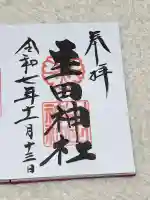 奉拝
生田神社
令和七年十一月十三日